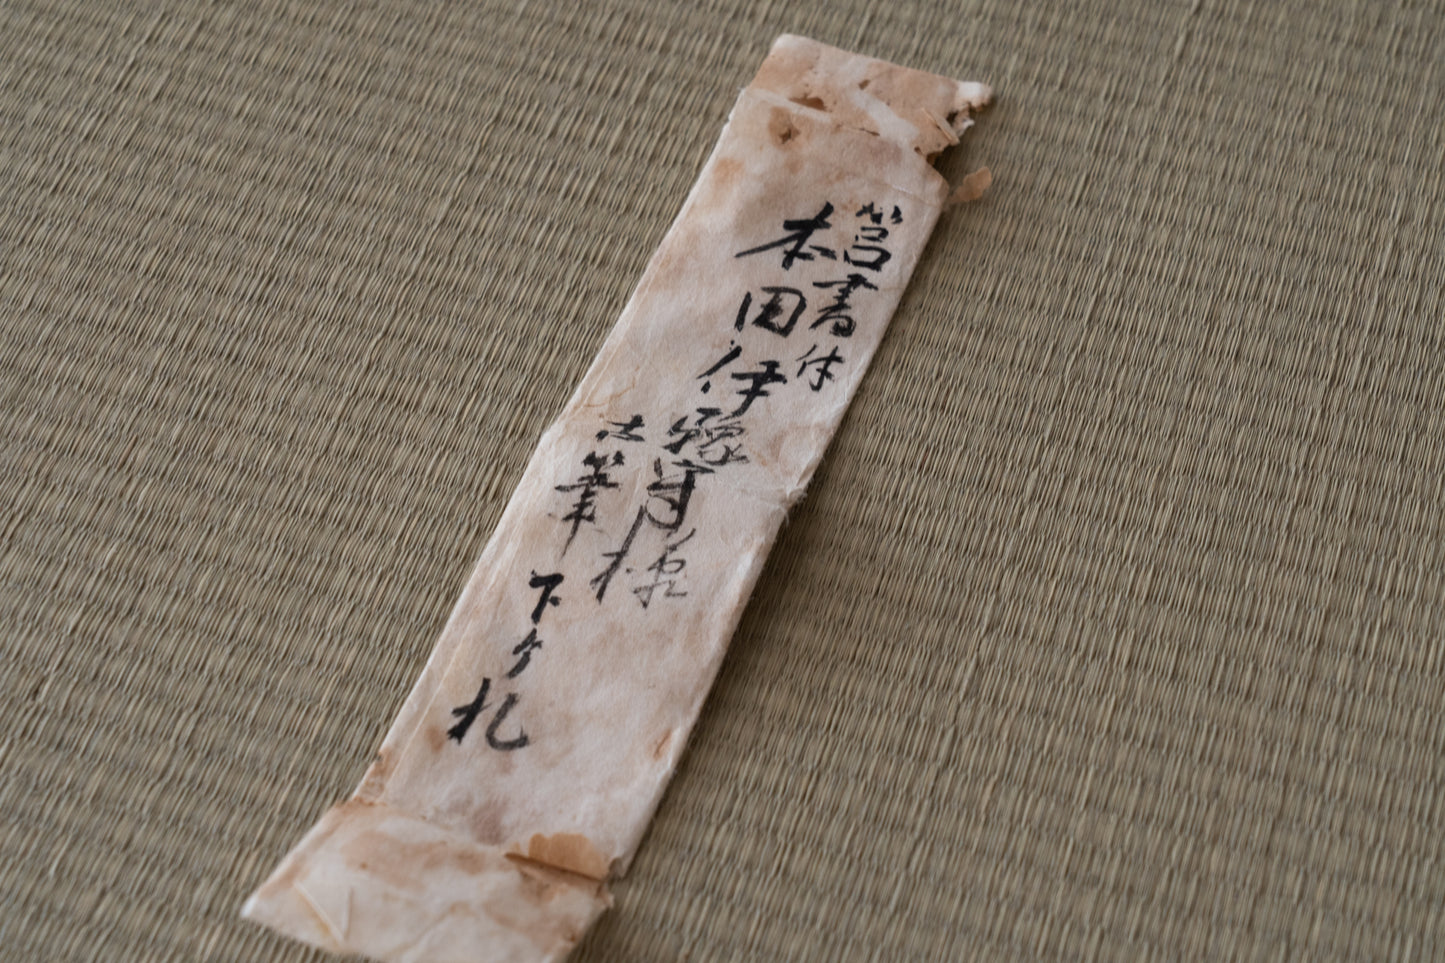 筥書付
本田伊豫守様
古筆
下ケ札